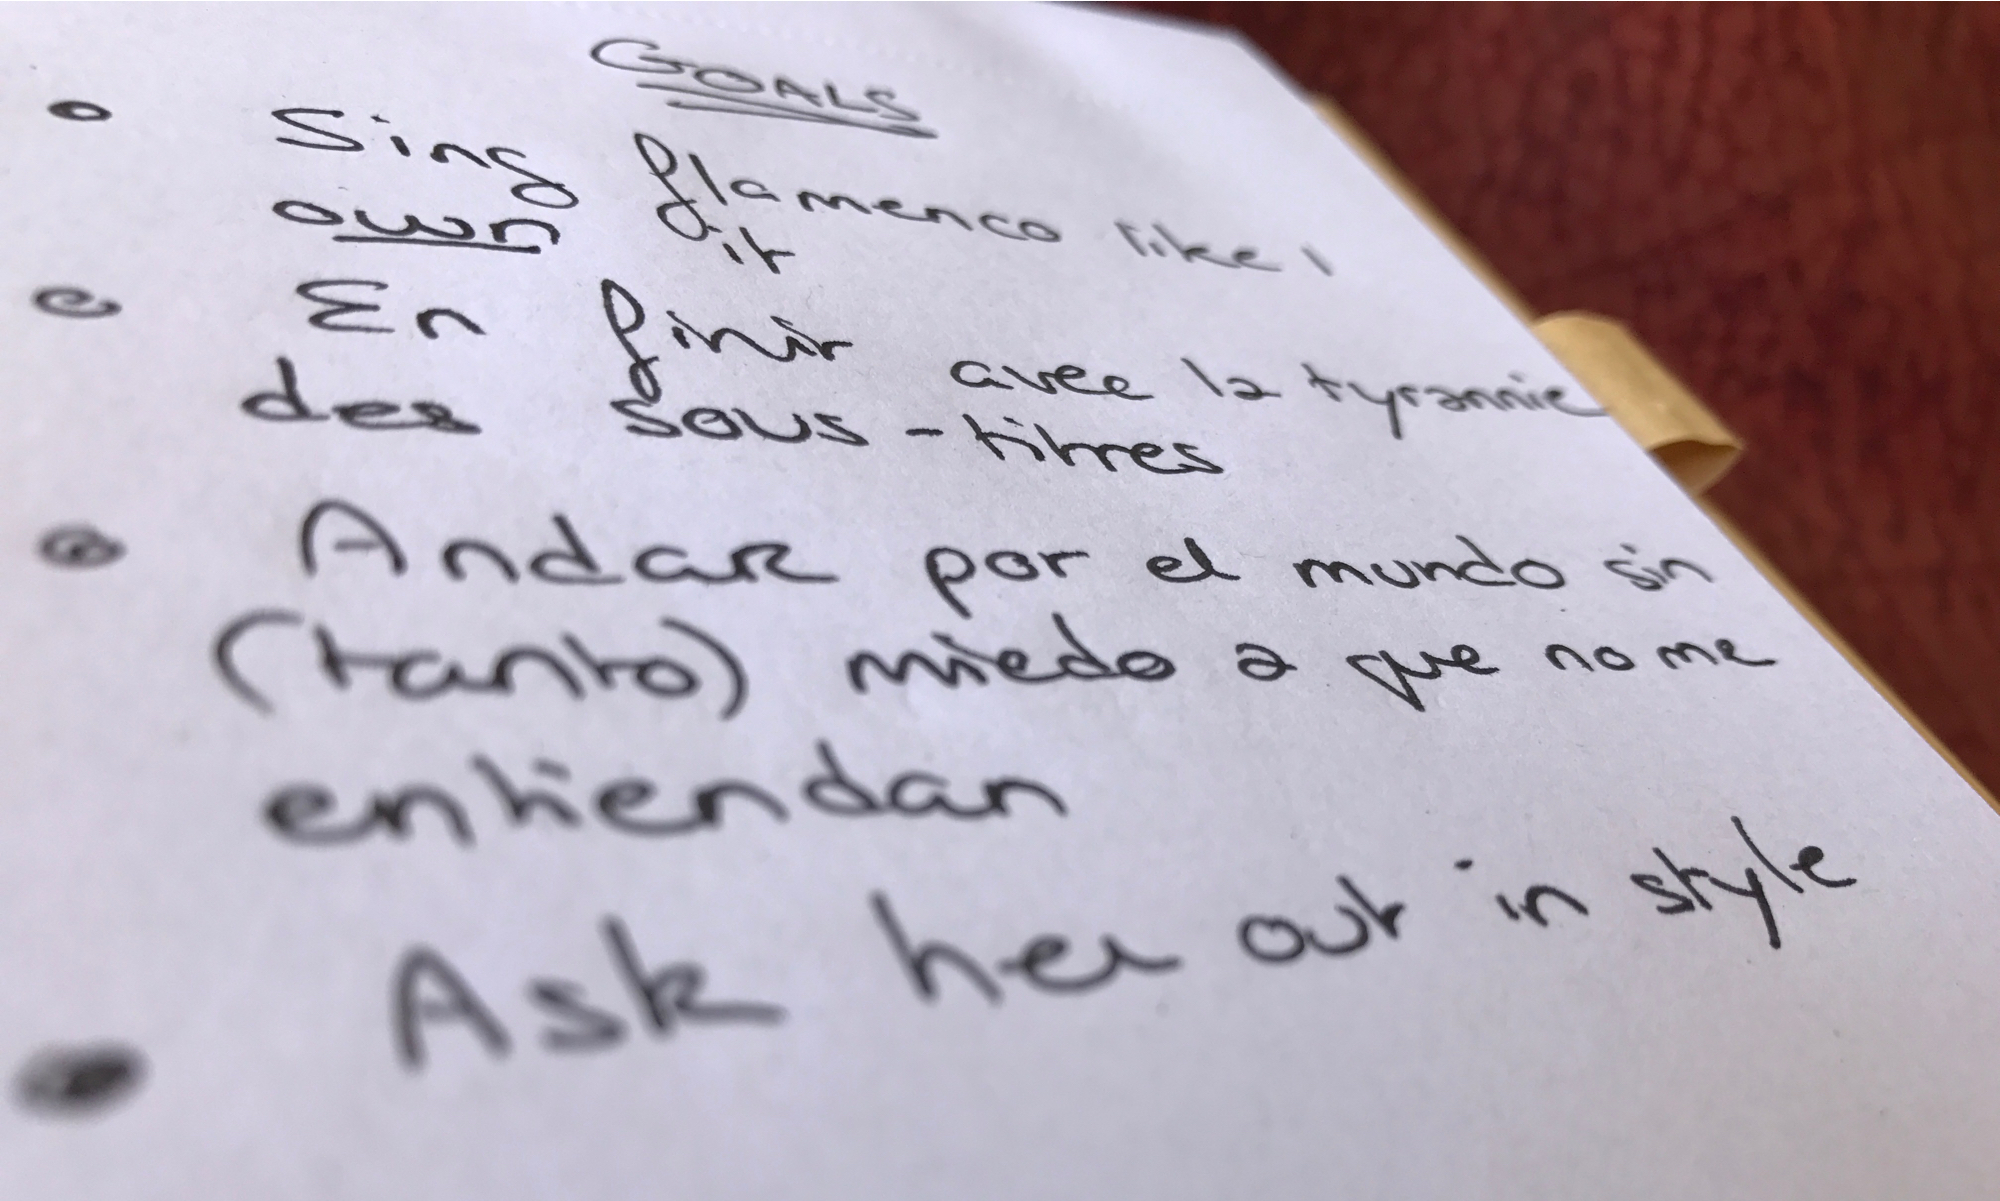 GOALS
Sing flamenco like I
own it
En finir avec la tyrannie
des sous-titres
Andar por el mundo sin
(tanto) miedo a que no me
entiendan
Ask her out in style